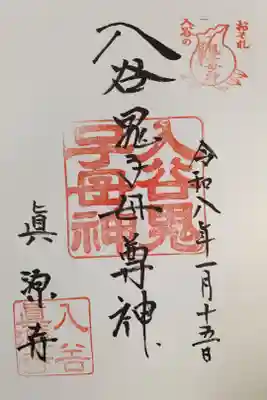 おそれ
入谷の
令和八年一月十五日
入谷鬼子母尊神
入谷鬼
子母神
眞源寺
入谷